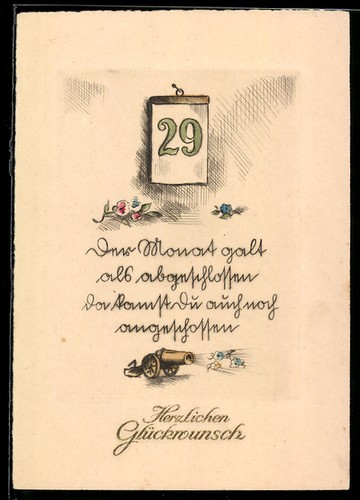 29
Der Monat galt
als abgeschlossen
da kamst Du auch noch
angeschossen
Herzlichen
Glückwunsch